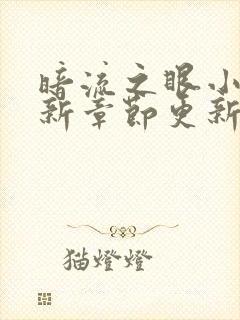 暗流之眼小
新章節更新
猫燈燈